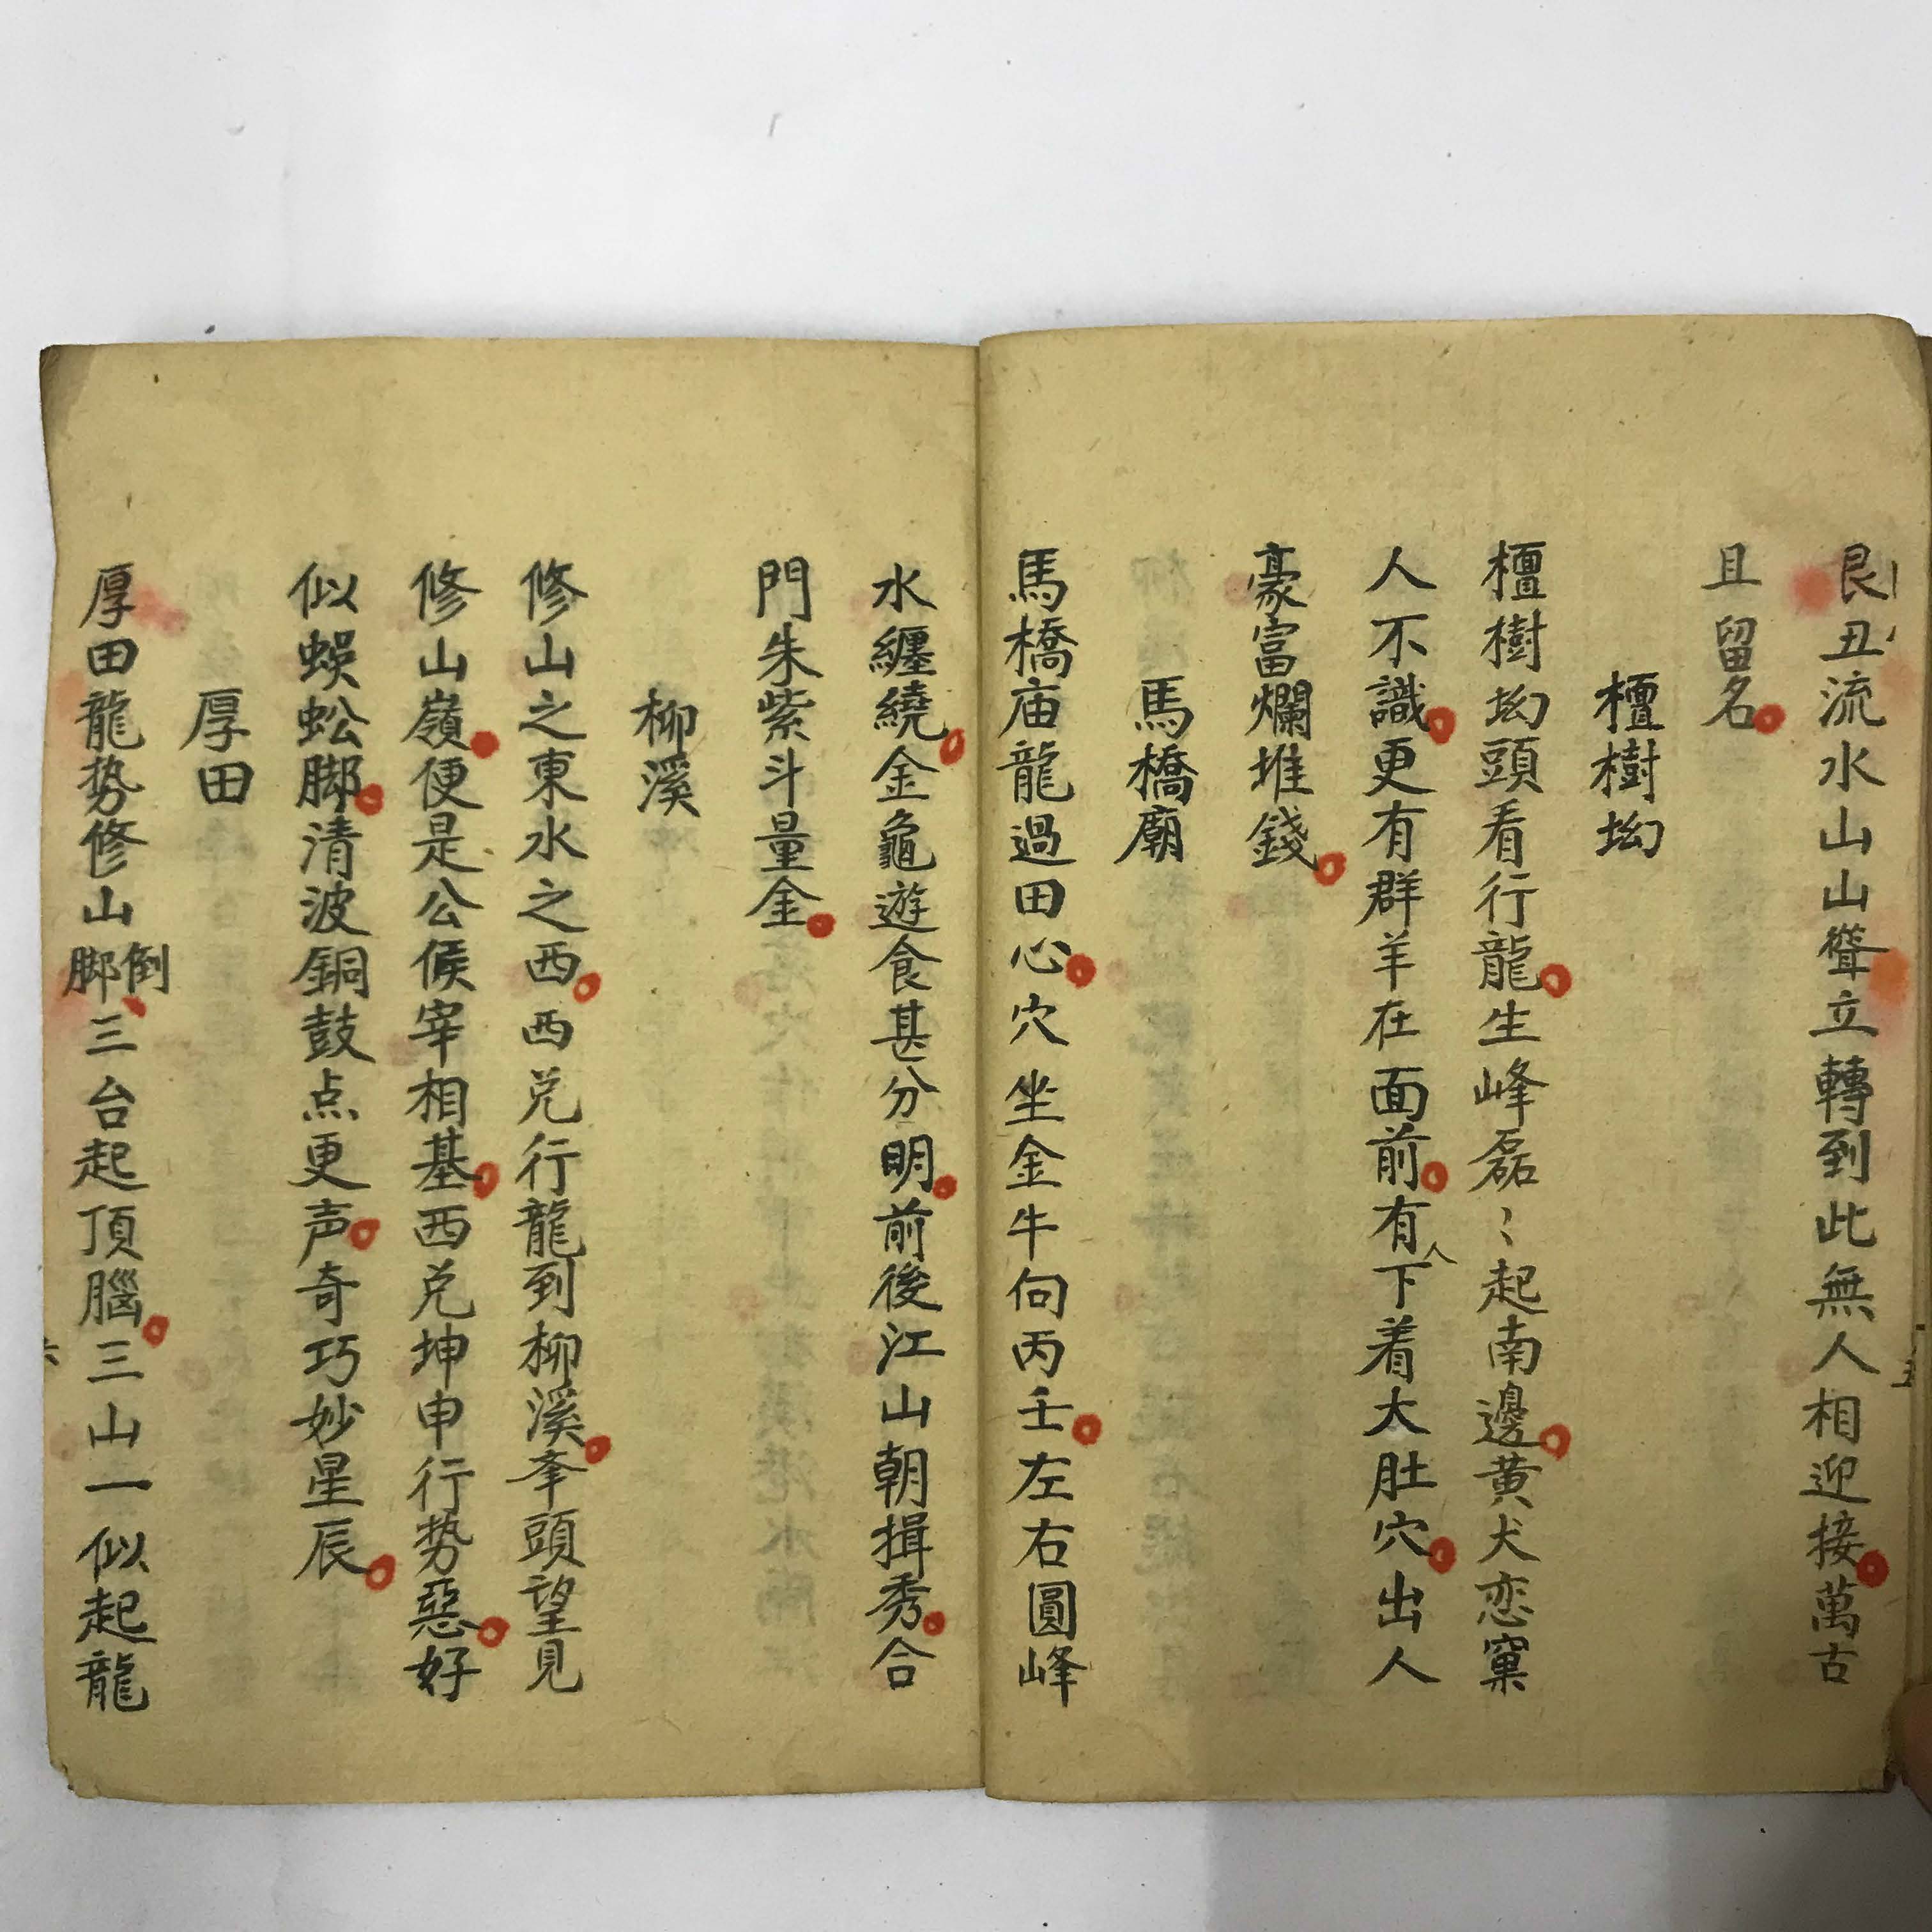 艮丑流水山山聳立轉到此無人相迎接萬古
且留名
檀樹坳
檀樹坳頭看行龍生峰磊〻起南邊黄犬恋窠
人不識更有群羊在面前有人下着大肚穴出人
豪富爛堆錢
馬橋廟
馬橋庙龍過田心穴坐金牛向丙壬左右圓峰
水纏繞金龜遊食甚分明前後江山朝揖秀合
門朱紫斗量金
柳溪
修山之東水之西西兑行龍到柳溪夆頭望見
修山嶺便是公侯宰相基西兑坤申行势惡好
似蜈蚣脚清波銅鼓点更声奇巧妙星辰
厚田
厚田龍势修山脚倒三台起頂腦三山一似起龍
六